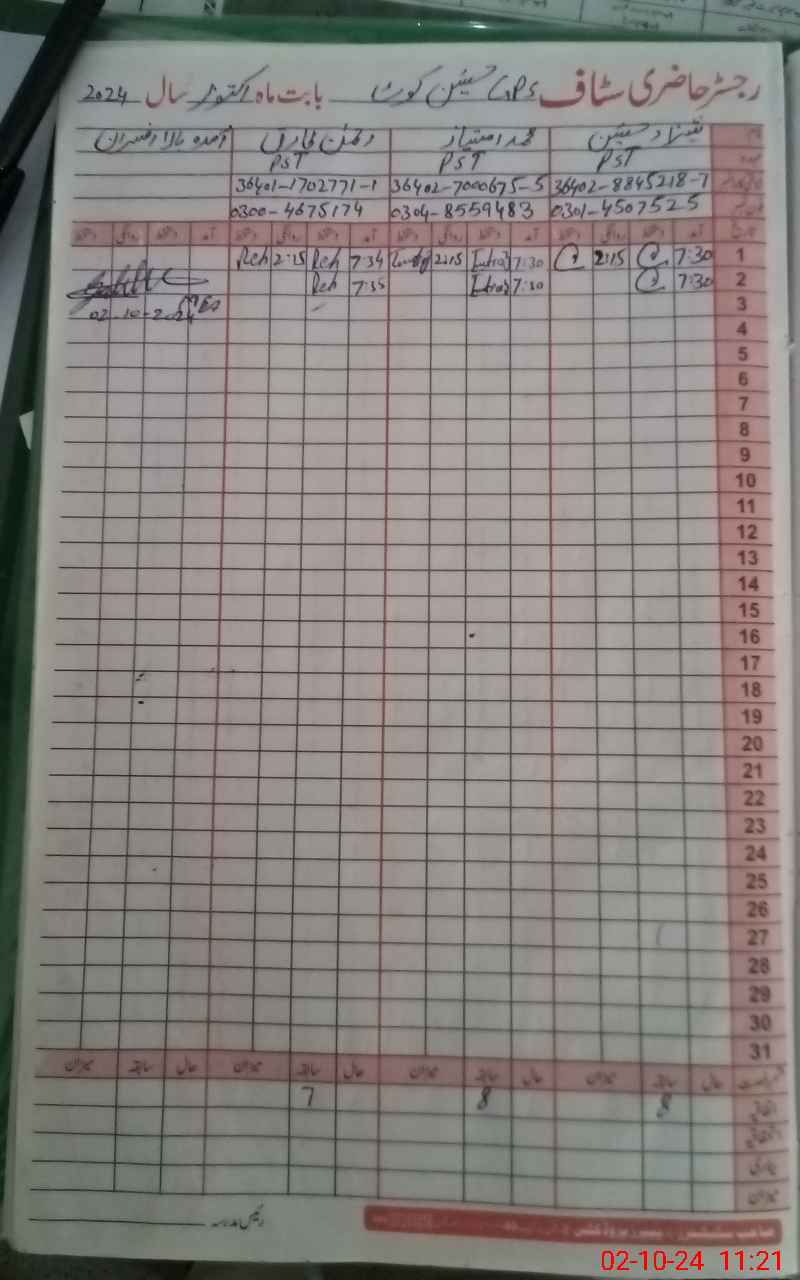 رجسٹر حاضری سٹاف GPS حسین کوٹ بابت ماہ اکتوبر سال 2024
نام شہزاد حسین محمد امتیاز رحمن طارق آمدہ بالا افسران
عہدہ PST PST PST
36402-8845218-7 36402-7000675-5 36401-1702771-1
0301-4507525 0304-8559483 0300-4675174
تاریخ آمد دستخط روانگی دستخط آمد دستخط روانگی دستخط آمد دستخط روانگی دستخط آمد دستخط روانگی دستخط
1 7:30 2:15 7:30 2:15 7:34 Reh 2:15 Reh
2 7:30 7:30 7:35 Reh
3 02-10-2024
4
5
6
7
8
9
10
11
12
13
14
15
16
17
18
19
20
21
22
23
24
25
26
27
28
29
30
31
حال سابقہ میزان حال سابقہ میزان حال سابقہ میزان حال سابقہ میزان
اتفاقیہ 8 8 7
بیماری
میزان
رئیس مدرسہ
02-10-24 11:21